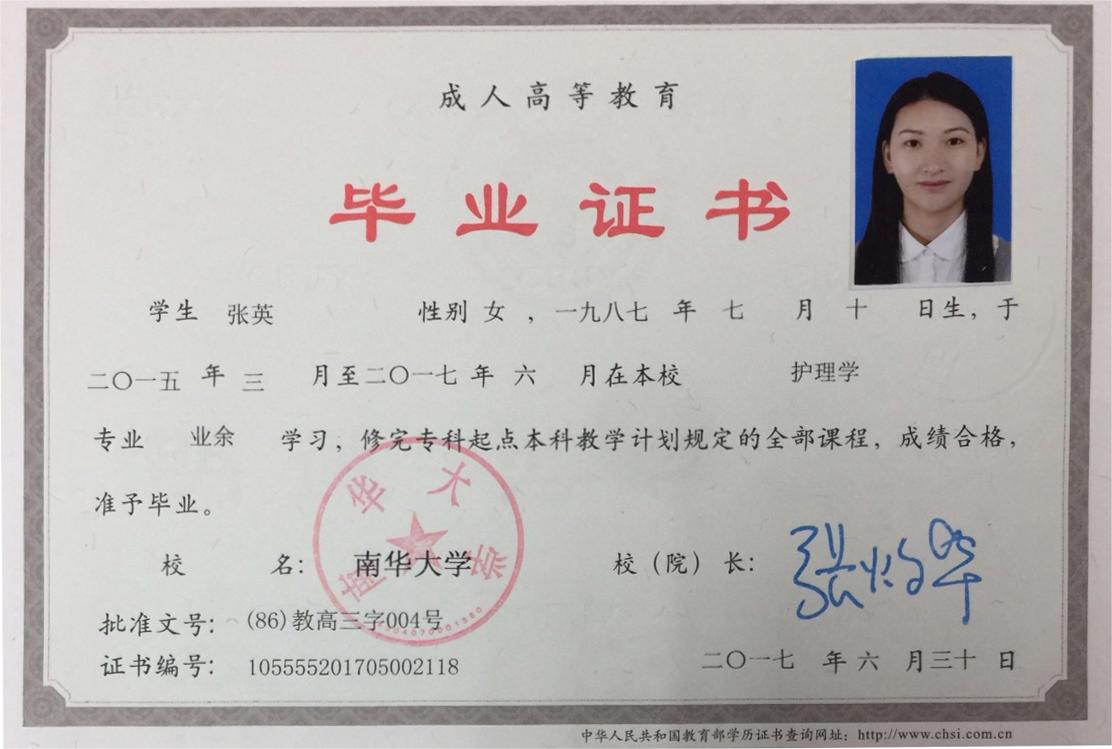 成人高等教育
毕业证书
学生 张英 性别 女 ，一九八七 年 七 月 十 日生，于
二〇一五 年 三 月至二〇一七 年 六 月在本校 护理学
专业 业余 学习，修完专科起点本科教学计划规定的全部课程，成绩合格，
准予毕业。
南华大学
校 名： 南华大学 校（院）长：
批准文号： (86)教高三字004号
证书编号： 105555201705002118 二〇一七 年 六 月三十 日
中华人民共和国教育部学历证书查询网址： http://www.chsi.com.cn